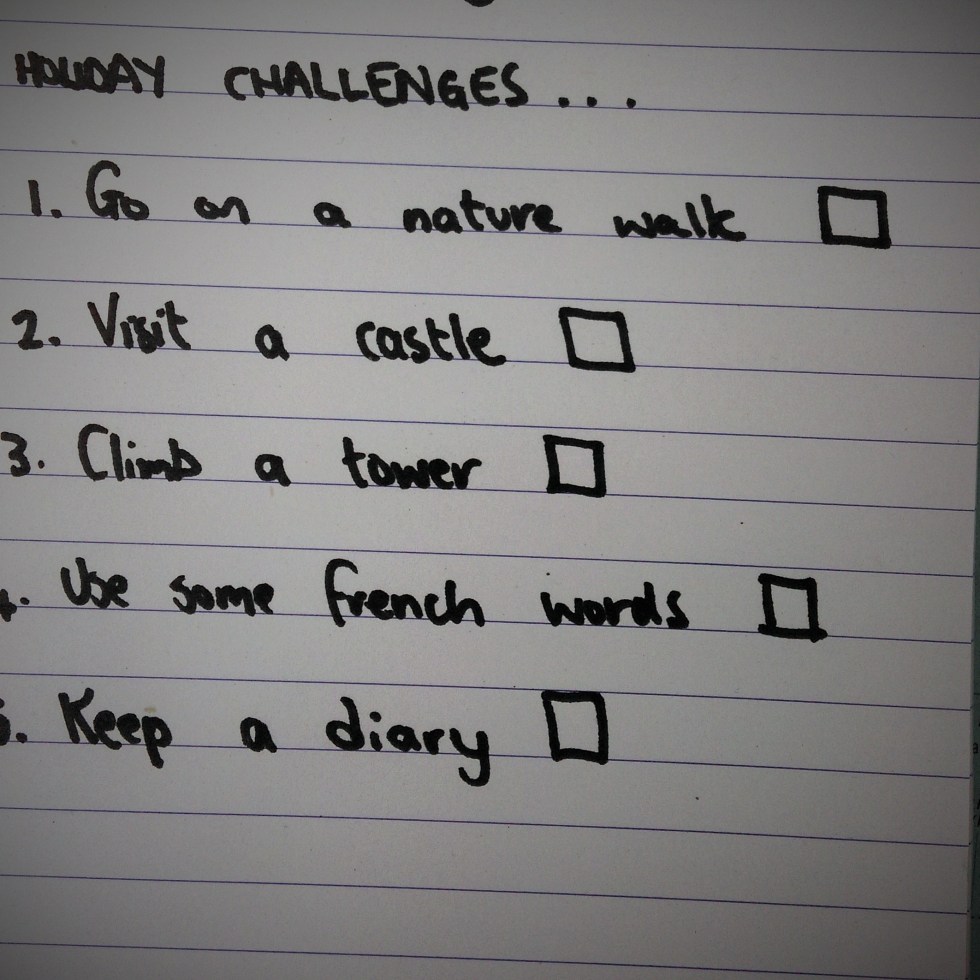 HOLIDAY CHALLENGES...
1. Go on a nature walk
2. Visit a castle
3. Climb a tower
4. Use some french words
5. Keep a diary